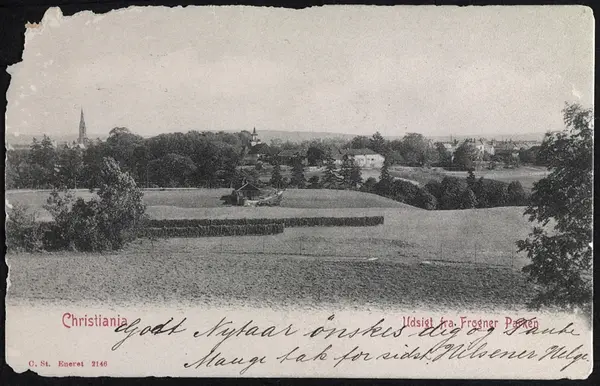 Christiania
Udsigt fra Frogner Parken
Godt Nytaar ønskes dig og Tante
Mange tak for sidst Helsener Helge
C. St. Eneret 2146